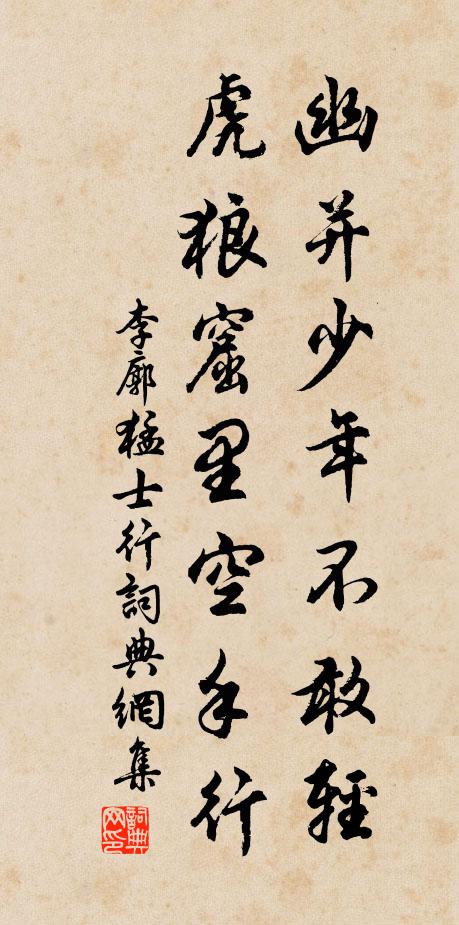 幽并少年不敢輕
虎狼窟里空手行
李廓猛士行詞典網集
詞典網印